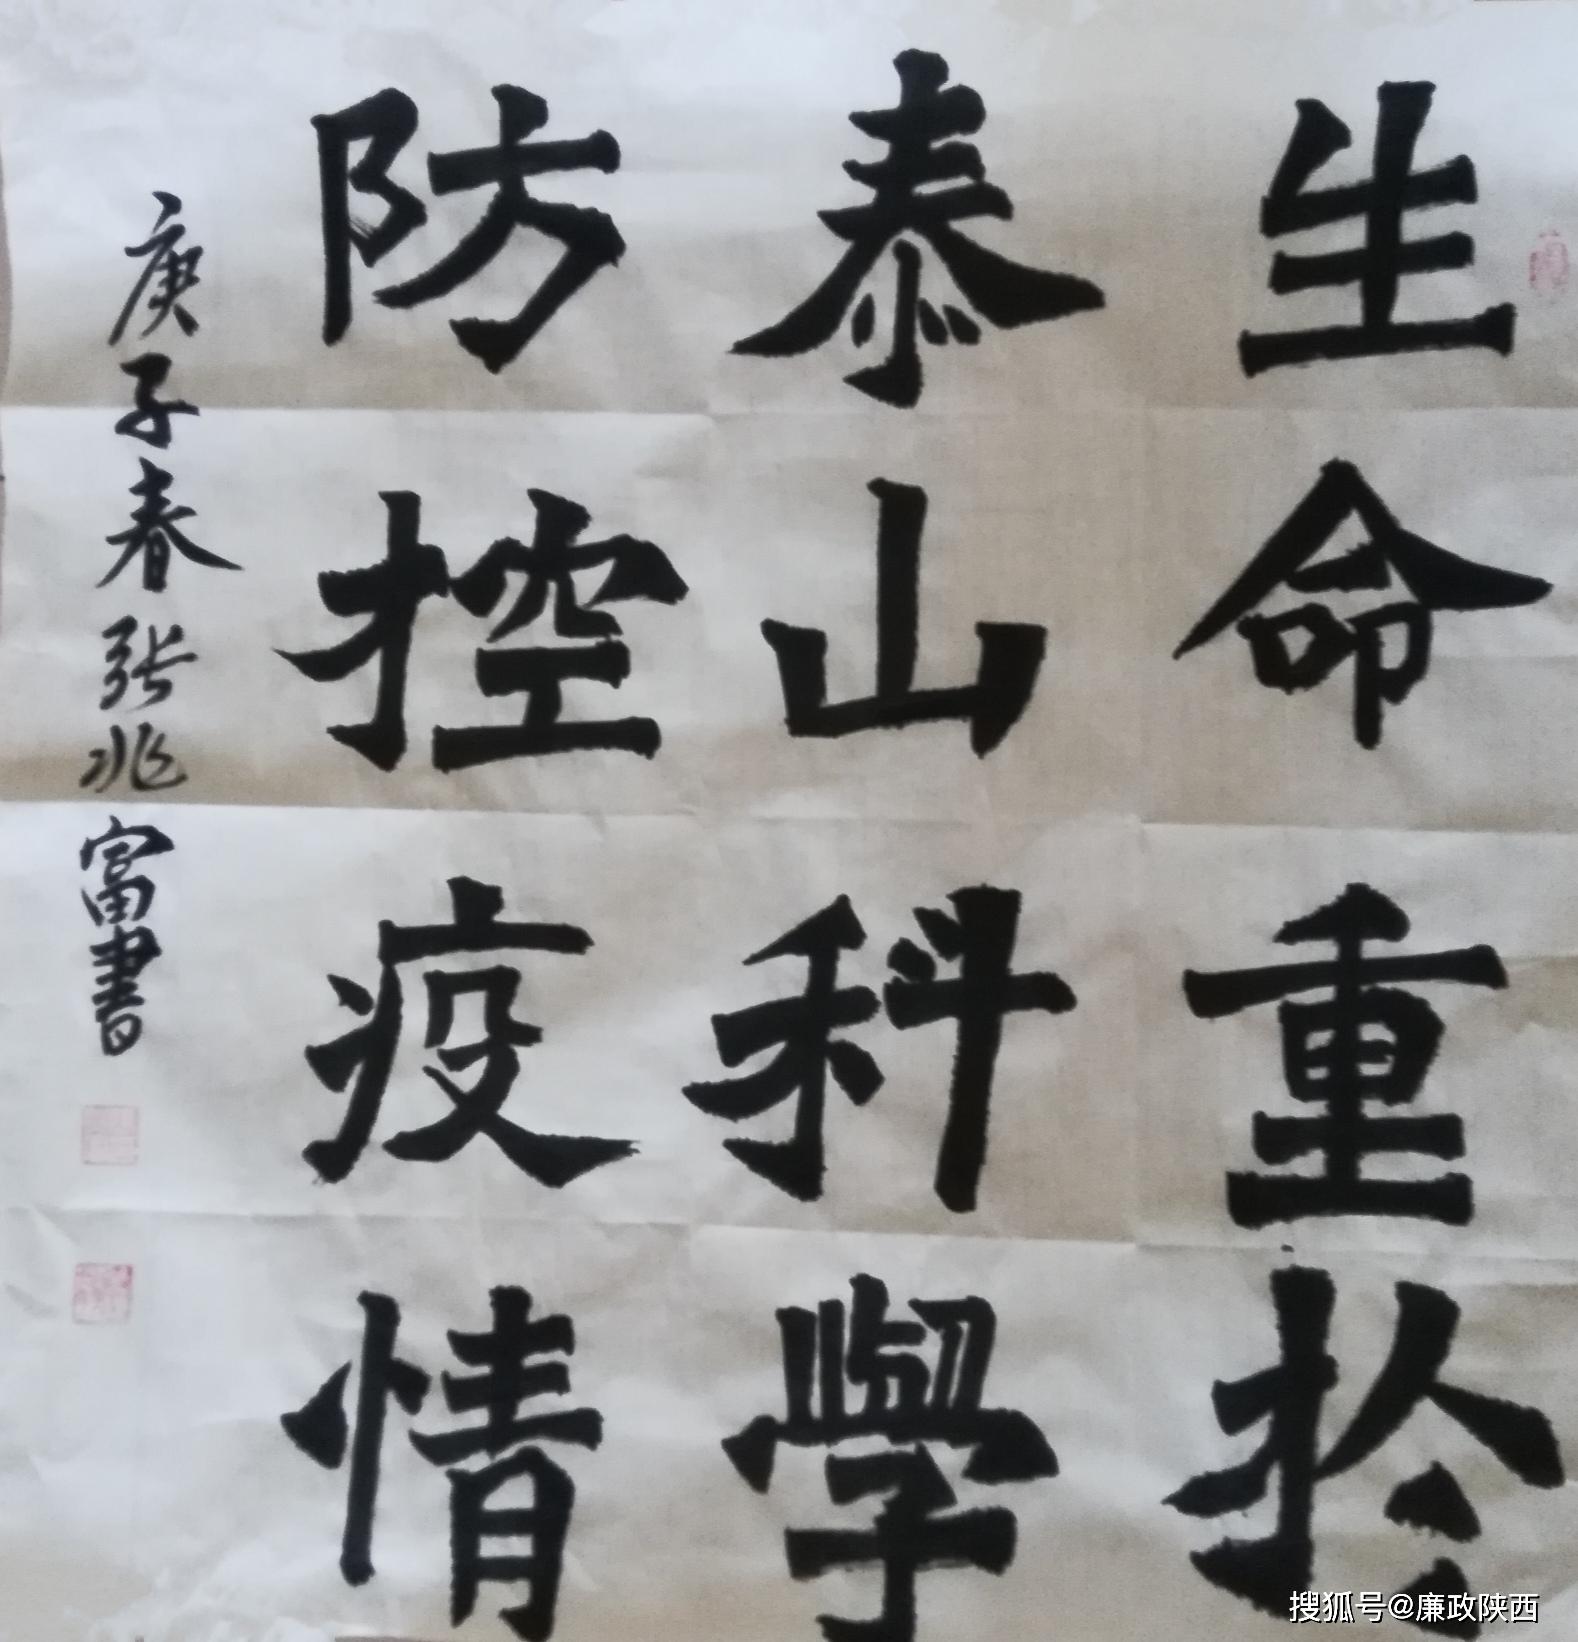 生命重扵
泰山科學
防控疫情
庚子春张兆富書
搜狐号@廉政陕西